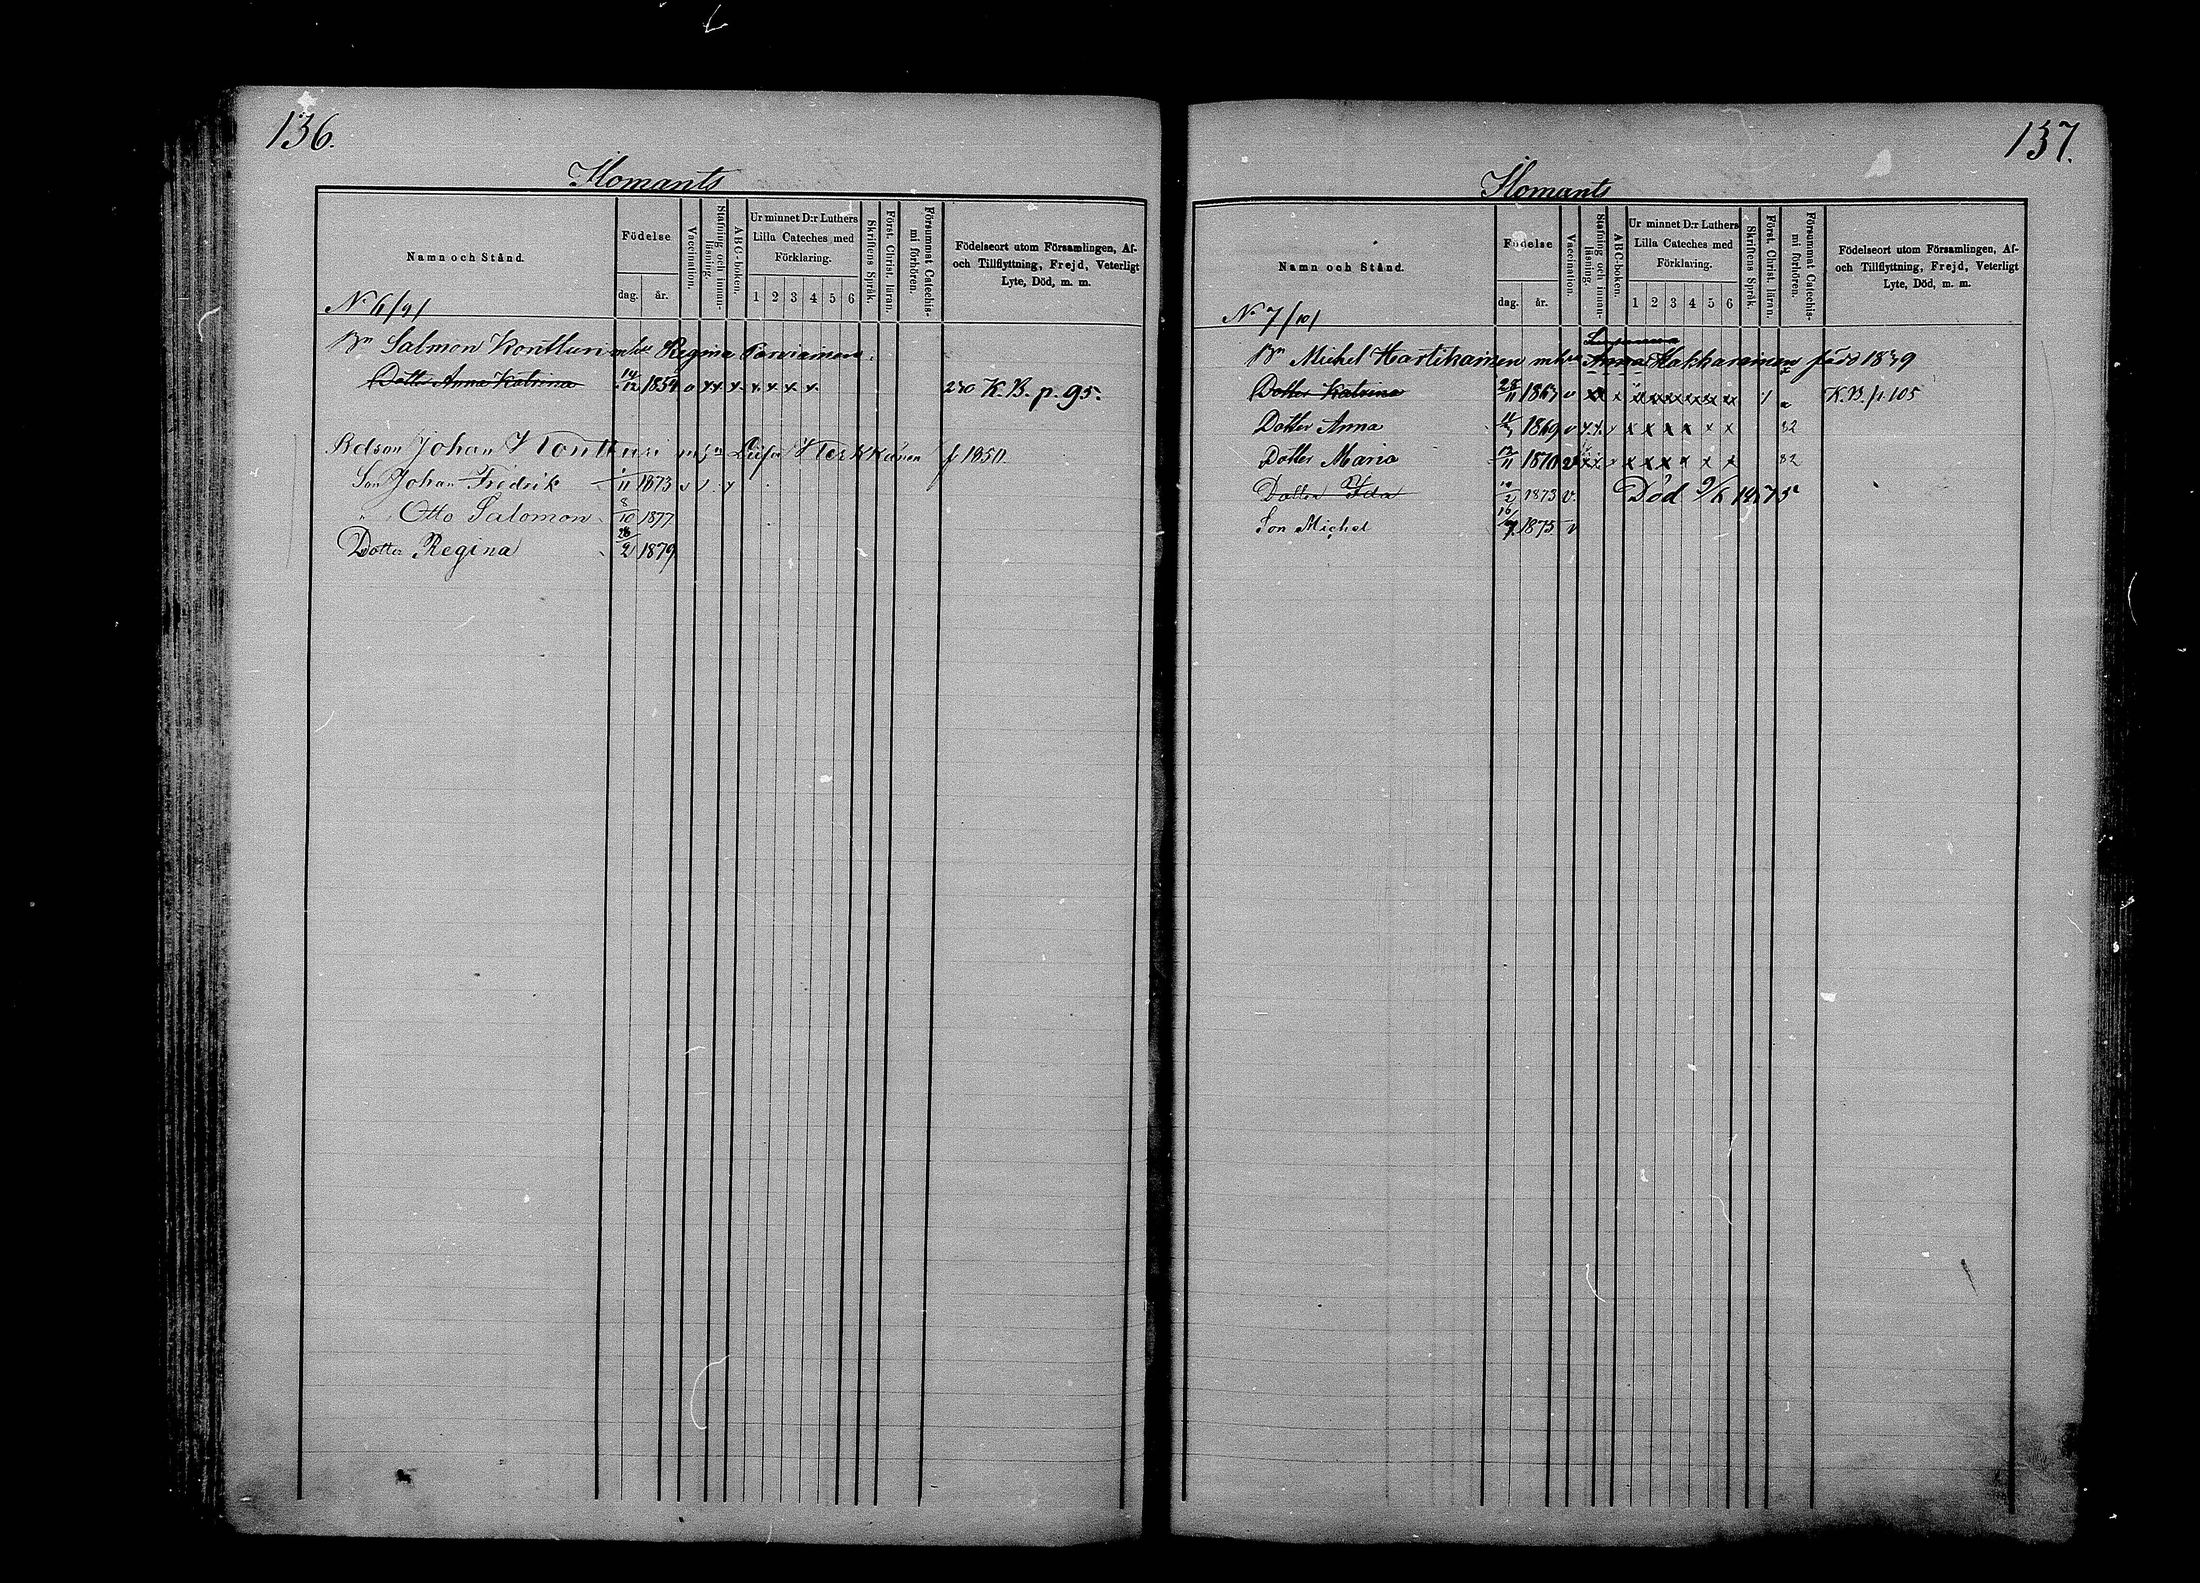 136.
Ilomants
Namn och Stånd.
Födelse
dag. år.
Vaccination.
Stafning och innanläsning.
ABC-boken.
Ur minnet D:r Luthers Lilla Cateches med Förklaring.
1 2 3 4 5 6
Skriftens Språk.
Först. Christ. läran.
Försummat Catechismi förhören.
Födelseort utom Församlingen, Af-
och Tillflyttning, Frejd, Veterligt
Lyte, Död, m. m.
No 6/9/
Bn Salmon Kontturi mhu Regina Parviainen
Dotter Anna Katrina 14/12 1854 v x x x x x x x K. B. p. 95.
Bdson Johan Kontturi Lüsa f 1850.
Son Johan Fredrik 1/11 1873 v
" Otto Salomon 8/10 1877
Dotter Regina 28/2 1879
137.
Ilomants
Namn och Stånd.
Födelse
dag. år.
Vaccination.
Stafning och innanläsning.
ABC-boken.
Ur minnet D:r Luthers
Lilla Cateches med
Förklaring.
1 2 3 4 5 6
Skriftens Språk.
Först. Christ. läran.
Försummat Catechismi förhören.
Födelseort utom Församlingen, Af-
och Tillflyttning, Frejd, Veterligt
Lyte, Död, m. m.
No 7/10/
Bn Michel Hartikainen mhu Anna Kakkarainen född 1839
Dotter Katrina 28/11 1867 v K. B. p. 105
Dotter Anna 1869 v x x x x x x 82
Dotter Maria 1870 v x x x x x x 82
Dotter Ida 1873 v. Död 1875
Son Michel 16/7 1875 v